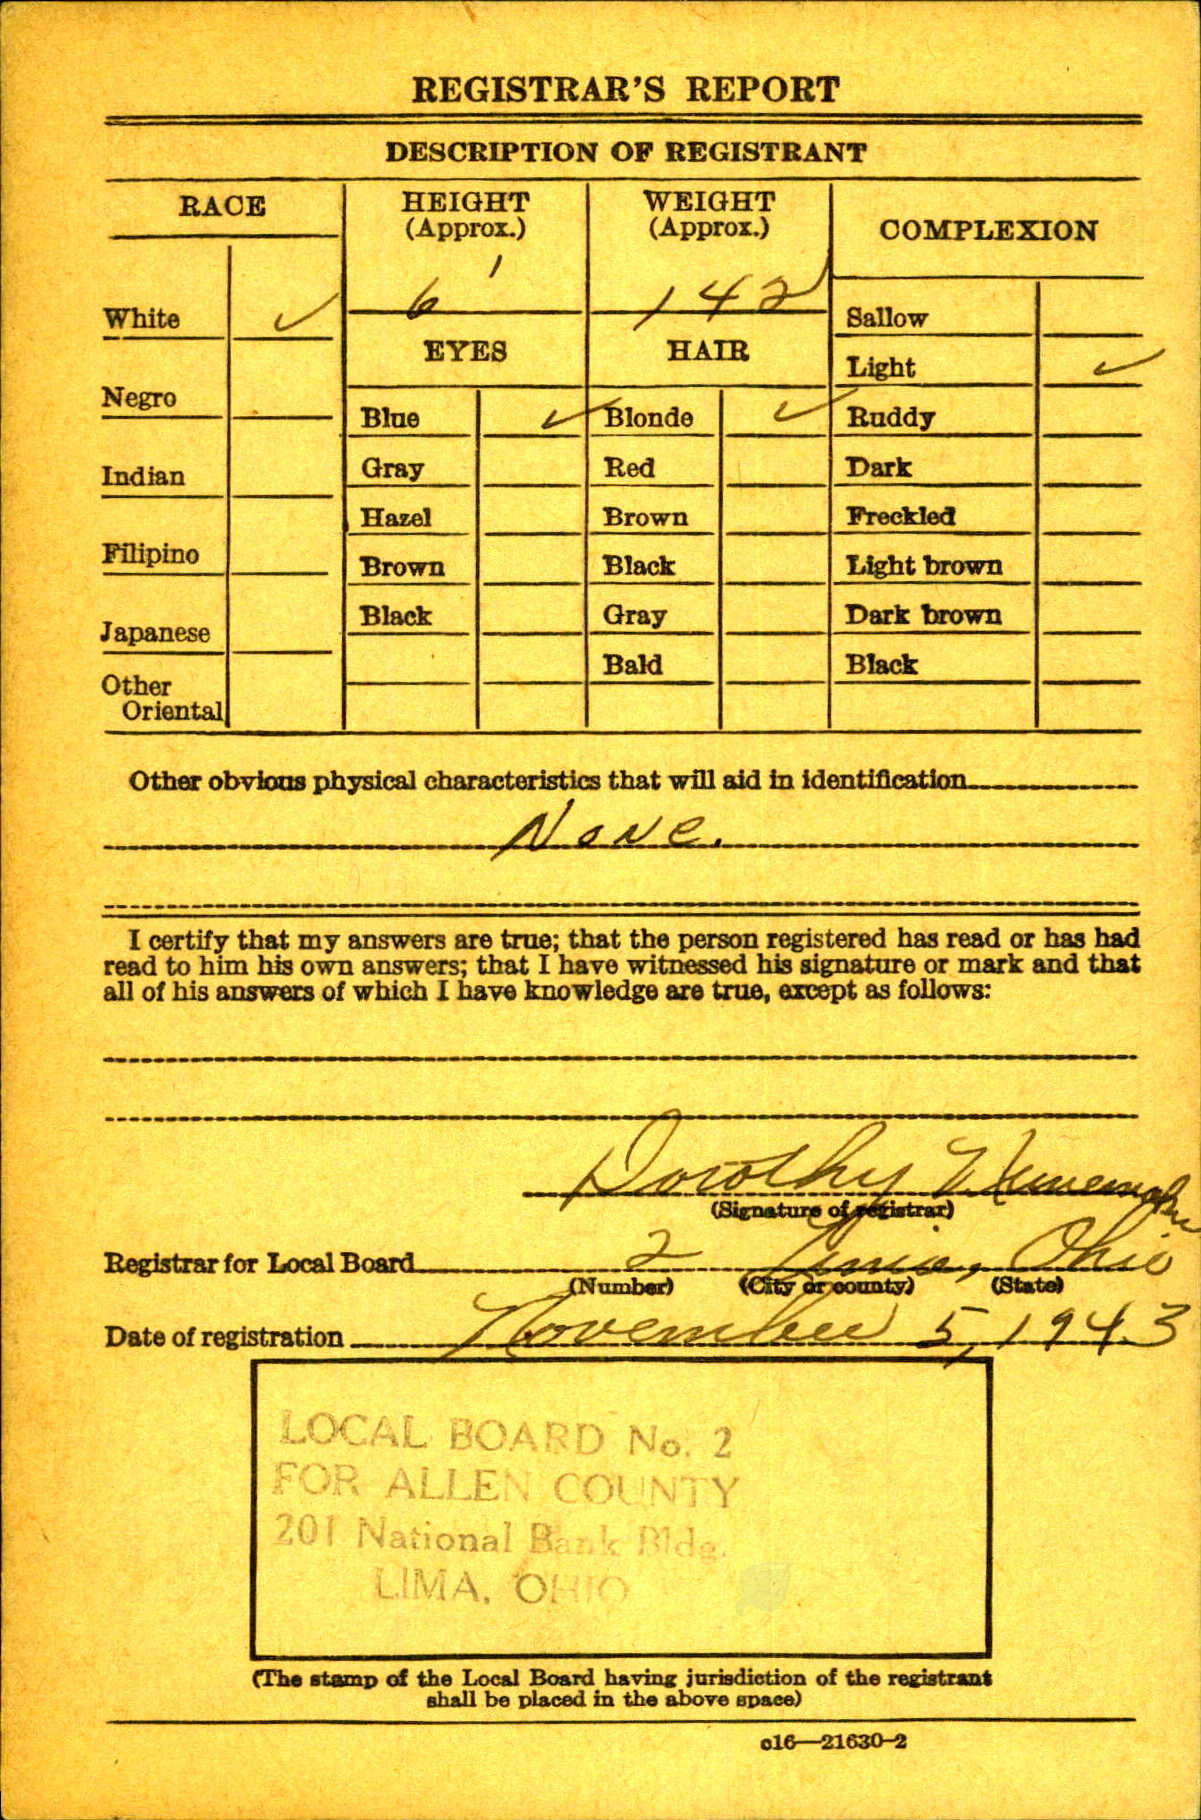 REGISTRAR'S REPORT
DESCRIPTION OF REGISTRANT
RACE
HEIGHT
(Approx.)
WEIGHT
(Approx.)
COMPLEXION
6'
142
White ✓
Negro
Indian
Filipino
Japanese
Other
Oriental
EYES
Blue ✓
Gray
Hazel
Brown
Black
HAIR
Blonde ✓
Red
Brown
Black
Gray
Bald
Sallow
Light ✓
Ruddy
Dark
Freckled
Light brown
Dark brown
Black
Other obvious physical characteristics that will aid in identification
None.
I certify that my answers are true; that the person registered has read or has had
read to him his own answers; that I have witnessed his signature or mark and that
all of his answers of which I have knowledge are true, except as follows:
Dorothy
(Signature of registrar)
Registrar for Local Board 2 Lima, Ohio
(Number) (City or county) (State)
Date of registration November 5, 1943
LOCAL BOARD No. 2
FOR ALLEN COUNTY
201 National Bank Bldg.
LIMA, OHIO
(The stamp of the Local Board having jurisdiction of the registrant
shall be placed in the above space)
c16—21630-2